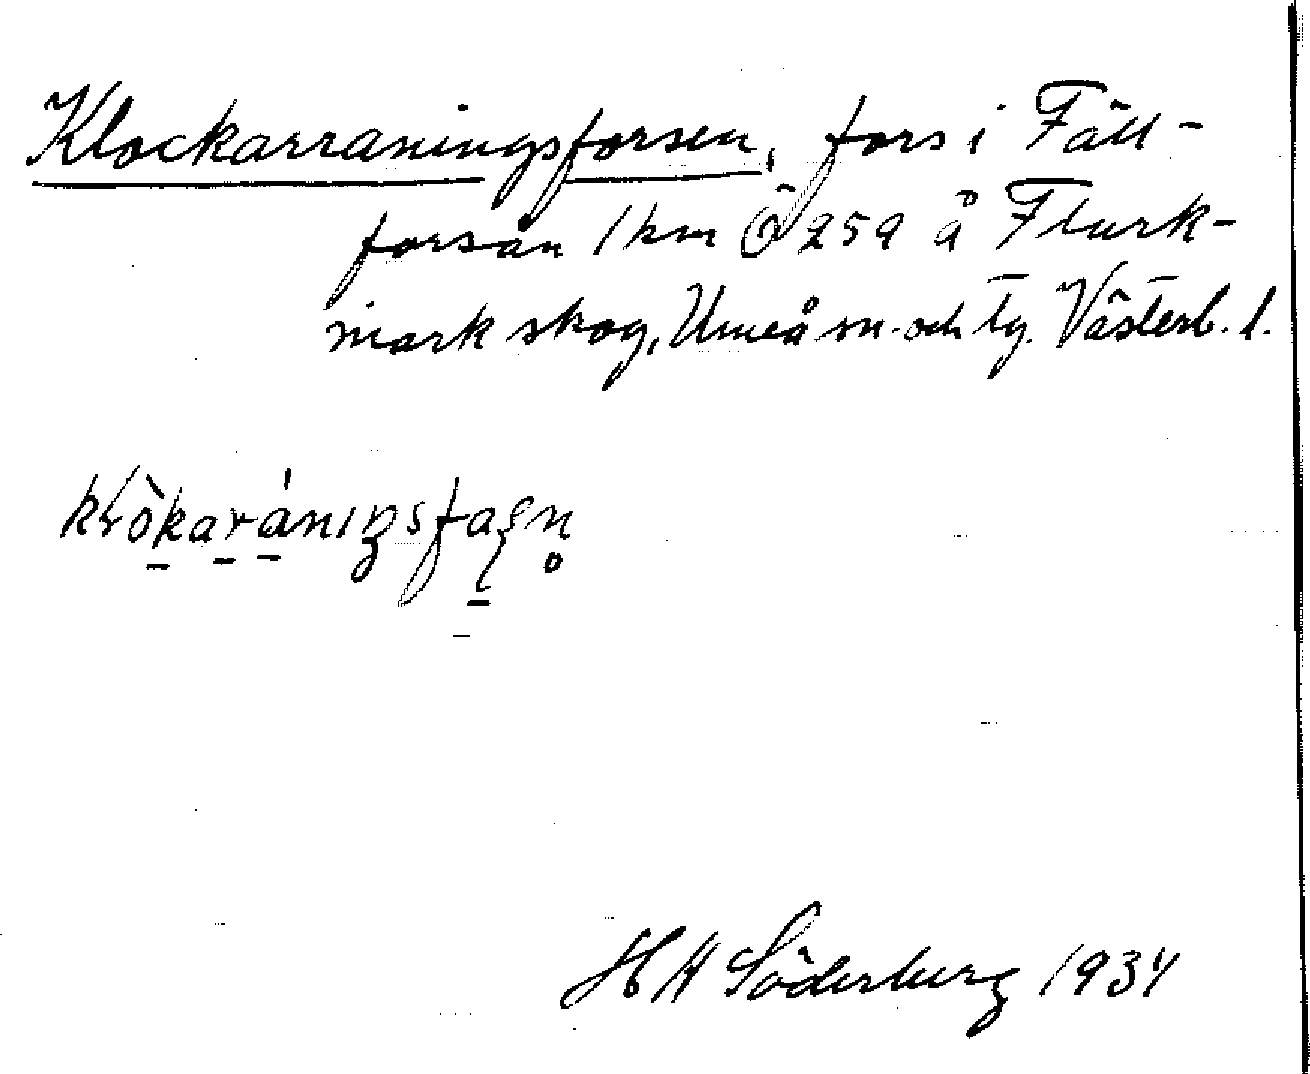 Klockarraningsforsen, fors i Fäll-
forsån 1 km Ö 259 å Flurk-
mark skog, Umeå sn. och tg. Västerb. l.
H A Söderberg 1934